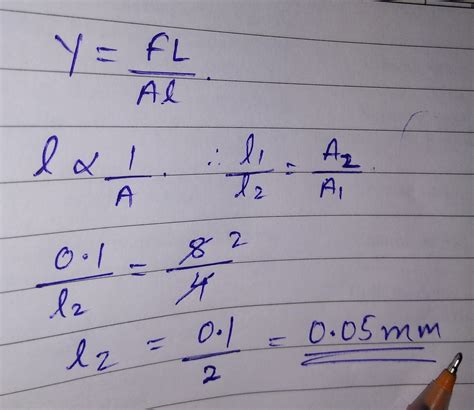 Y = FL / Al.
l ∝ 1 / A. ∴ l₁ / l₂ = A₂ / A₁.
0.1 / l₂ = 8 2 / 4
l₂ = 0.1 / 2 = 0.05mm